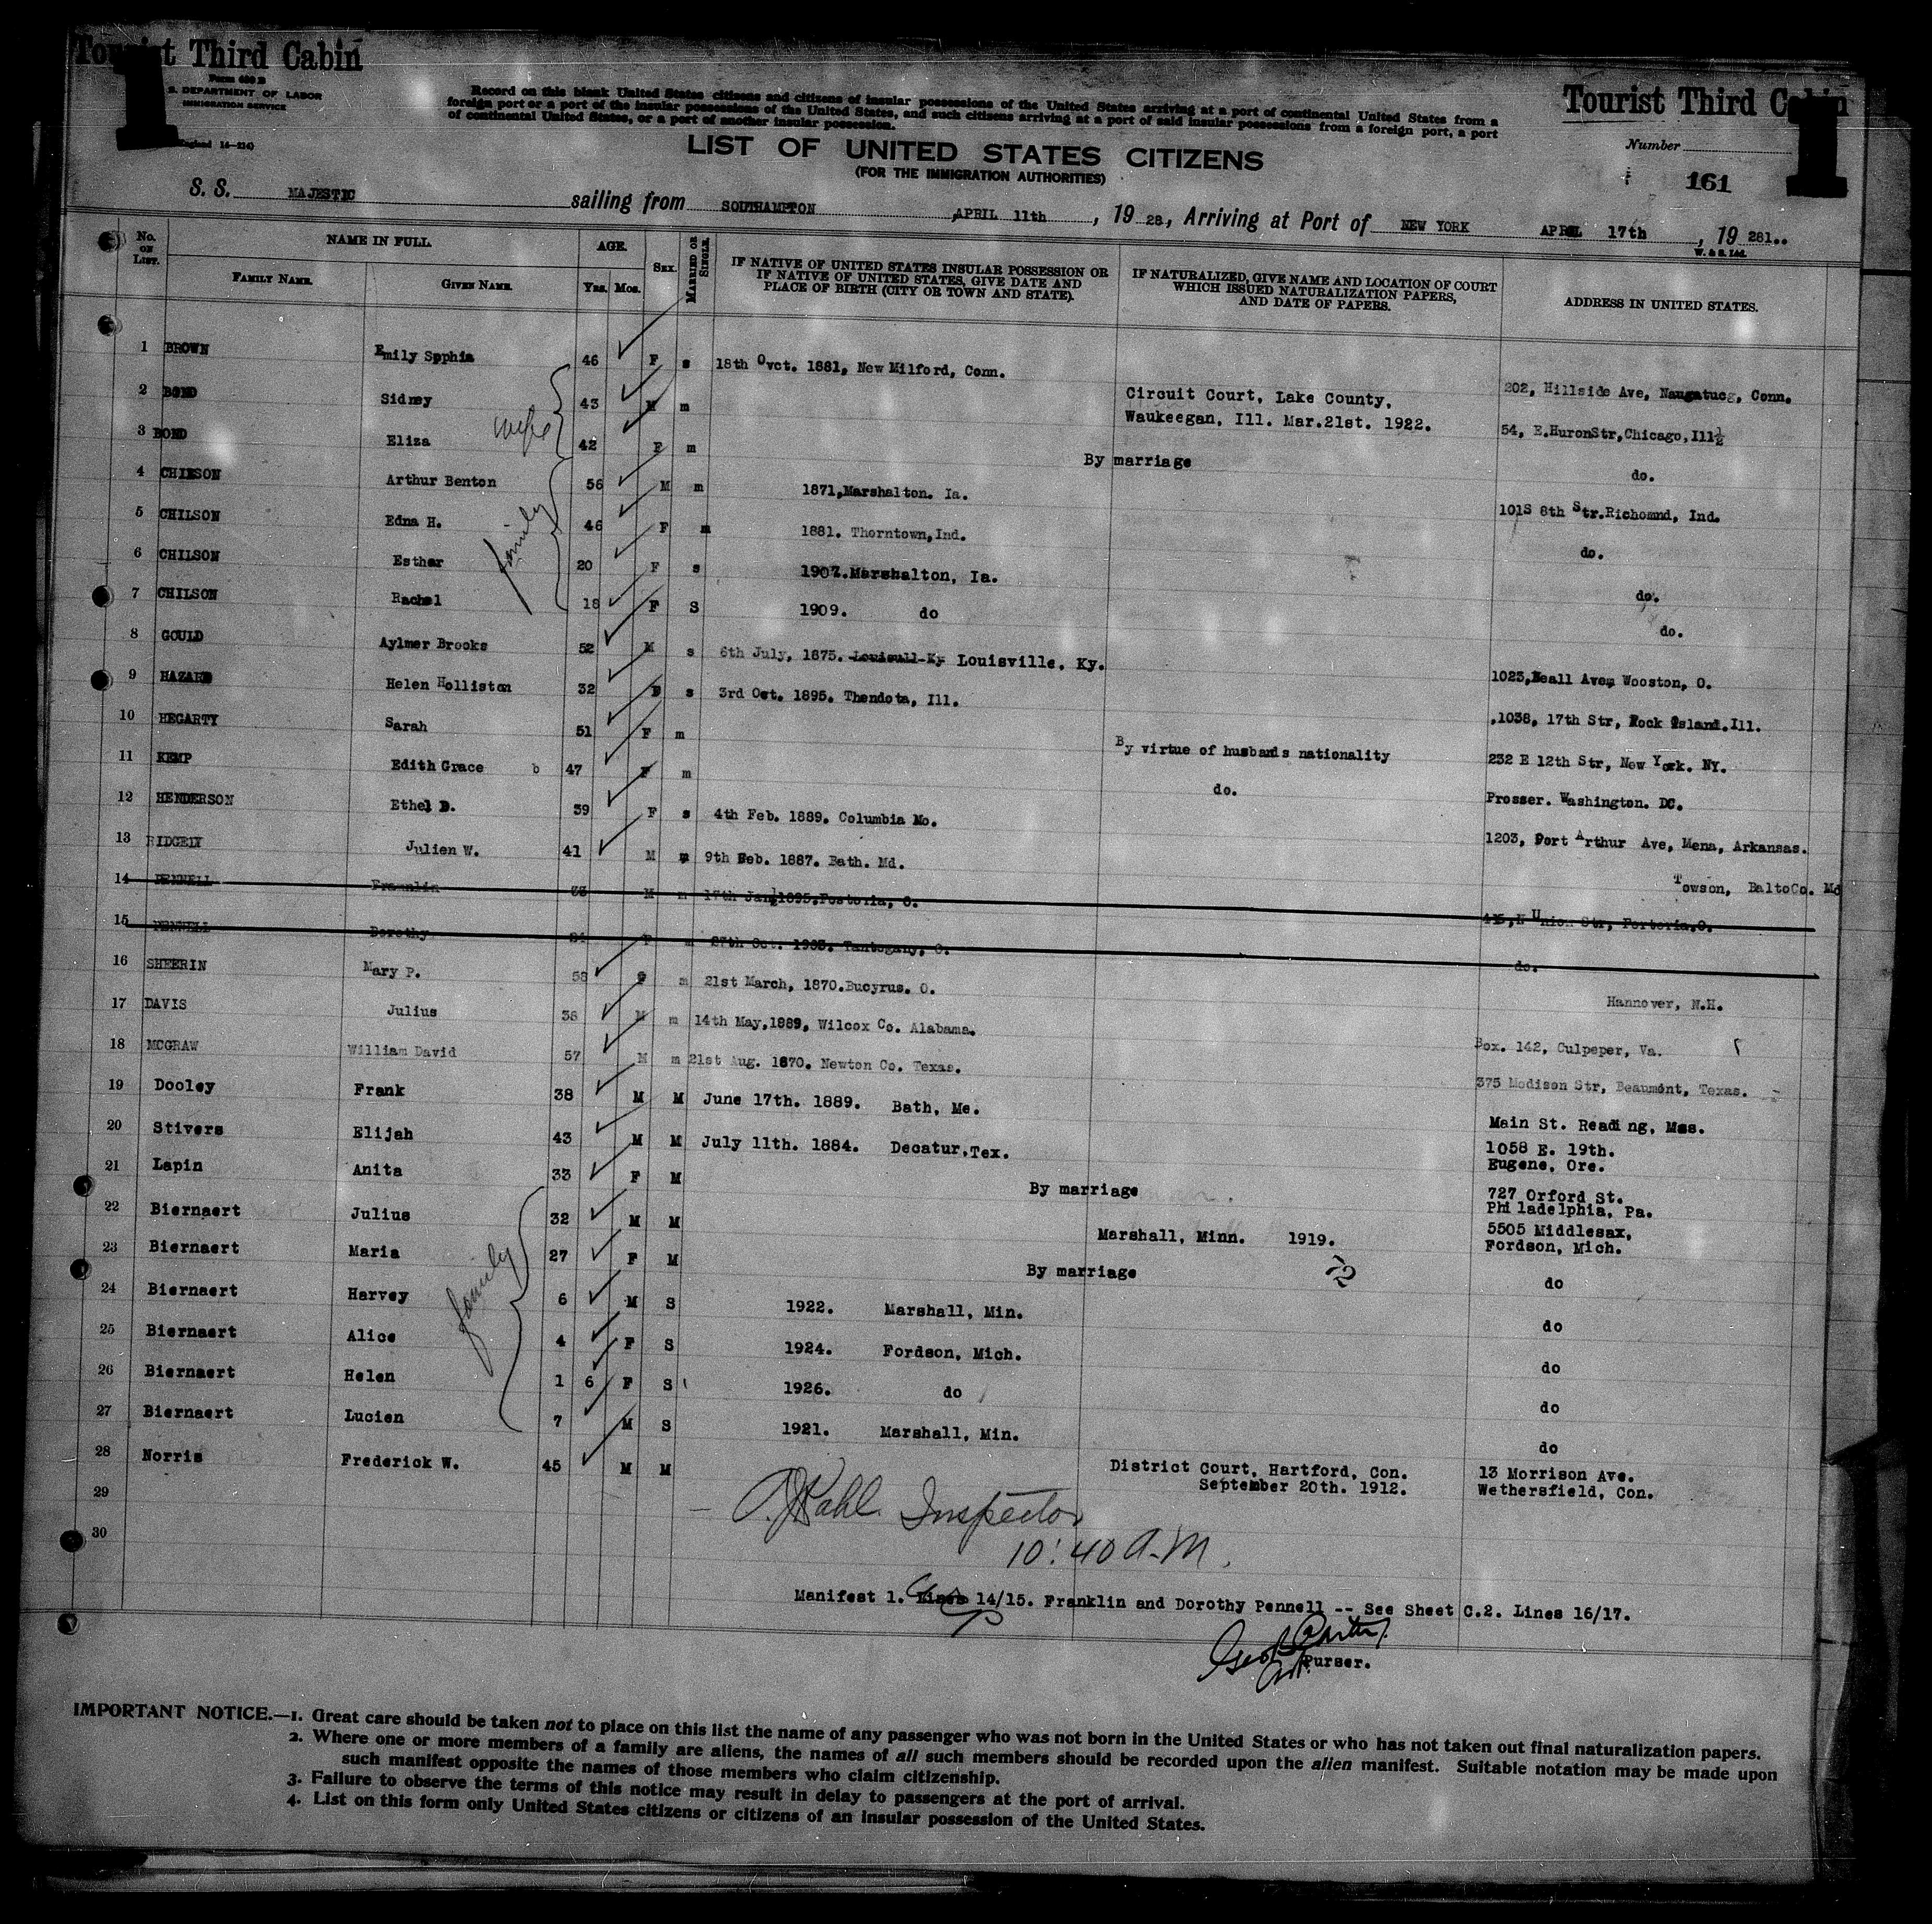 Tourist Third Cabin
Form 630 B
S. DEPARTMENT OF LABOR
IMMIGRATION SERVICE
(England 14—214)
Record on this blank United States citizens and citizens of insular possessions of the United States arriving at a port of continental United States from a
foreign port or a port of the insular possessions of the United States, and such citizens arriving at a port of said insular possessions from a foreign port, a port
of continental United States, or a port of another insular possession.
Tourist Third Cabin
Number
161
LIST OF UNITED STATES CITIZENS
(FOR THE IMMIGRATION AUTHORITIES)
S. S. MAJESTIC sailing from SOUTHAMPTON ,APRIL 11th , 19 28 , Arriving at Port of NEW YORK APRIL 17th , 19 281..
W. & S. Ltd.
No. ON LIST. NAME IN FULL. FAMILY NAME. GIVEN NAME. AGE. Yrs. Mos. SEX. MARRIED OR SINGLE. IF NATIVE OF UNITED STATES INSULAR POSSESSION OR IF NATIVE OF UNITED STATES, GIVE DATE AND PLACE OF BIRTH (CITY OR TOWN AND STATE). IF NATURALIZED, GIVE NAME AND LOCATION OF COURT WHICH ISSUED NATURALIZATION PAPERS, AND DATE OF PAPERS. ADDRESS IN UNITED STATES.
1 BROWN Emily Spphia 46 F s 18th Ovct. 1881, New Milford, Conn. 202, Hillside Ave, Naugatucg, Conn.
2 BOND Sidney 43 M m Circuit Court, Lake County, Waukeegan, Ill. Mar.21st. 1922. 54, E.HuronStr,Chicago,Ill
wife
3 BOND Eliza 42 F m By marriage do.
4 CHILSON Arthur Benton 56 M m 1871,Marshalton. Ia. 101S 8th Str.Richomnd, Ind.
family
5 CHILSON Edna H. 46 F m 1881. Thorntown,Ind. do.
6 CHILSON Esther 20 F s 1907.Marshalton, Ia. do.
7 CHILSON Rachel 18 F S 1909. do do.
8 GOULD Aylmer Brooks 52 M s 6th July, 1875. Louisull-Ky Louisville, Ky. 1023,Beall Avem Wooston, O.
9 HAZARD Helen Holliston 32 F s 3rd Oct. 1895. Thendota, Ill. ,1038, 17th Str, Rock Island.Ill.
10 HEGARTY Sarah 51 F m By virtue of husbands nationality 232 E 12th Str, New York. NY.
11 KEMP Edith Grace b 47 F m do. Prosser. Washington. DC.
12 HENDERSON Ethel D. 39 F s 4th Feb. 1889. Columbia Mo. 1203, Port Arthur Ave, Mena, Arkansas.
13 RIDGELY Julien W. 41 M m 9th Feb. 1887. Bath. Md. Towson, BaltoCo. Md
14 PENNELL Franklin 33 M m 17th Jan 1895,Fostoria, O. 415,N Union Str, Fortoria.O.
15 PENNELL Dorothy 24 F m 27th Oct. 1903. Tontogany, O. do.
16 SHEERIN Mary P. 58 m 21st March, 1870.Bucyrus. O. Hannover, N.H.
17 DAVIS Julius 38 M m 14th May,1889, Wilcox Co. Alabama. Box. 142, Culpeper, Va.
18 MCGRAW William David 57 M m 21st Aug. 1870. Newton Co. Texas. 375 Modison Str, Beaumont, Texas.
19 Dooley Frank 38 M M June 17th. 1889. Bath, Me. Main St. Reading, Mss.
20 Stivers Elijah 43 M M July 11th. 1884. Decatur,Tex. 1058 E. 19th. Eugene, Ore.
21 Lapin Anita 33 F M By marriage 727 Orford St. Philadelphia, Pa.
22 Biernaert Julius 32 M M Marshall, Minn. 1919. 5505 Middlesax, Fordson, Mich.
23 Biernaert Maria 27 F M By marriage 72 do
family
24 Biernaert Harvey 6 M S 1922. Marshall, Min. do
25 Biernaert Alice 4 F S 1924. Fordson, Mich. do
26 Biernaert Helen 1 6 F S 1926. do do
27 Biernaert Lucien 7 M S 1921. Marshall, Min. do
28 Norris Frederick W. 45 M M District Court, Hartford, Con. September 20th. 1912. 13 Morrison Ave. Wethersfield, Con.
29
30
Kahl Inspector
10:40 A.M.
Manifest 1. Lines 14/15. Franklin and Dorothy Pennell -- See Sheet C.2. Lines 16/17.
Purser.
IMPORTANT NOTICE.—1. Great care should be taken not to place on this list the name of any passenger who was not born in the United States or who has not taken out final naturalization papers.
2. Where one or more members of a family are aliens, the names of all such members should be recorded upon the alien manifest. Suitable notation may be made upon
such manifest opposite the names of those members who claim citizenship.
3. Failure to observe the terms of this notice may result in delay to passengers at the port of arrival.
4. List on this form only United States citizens or citizens of an insular possession of the United States.